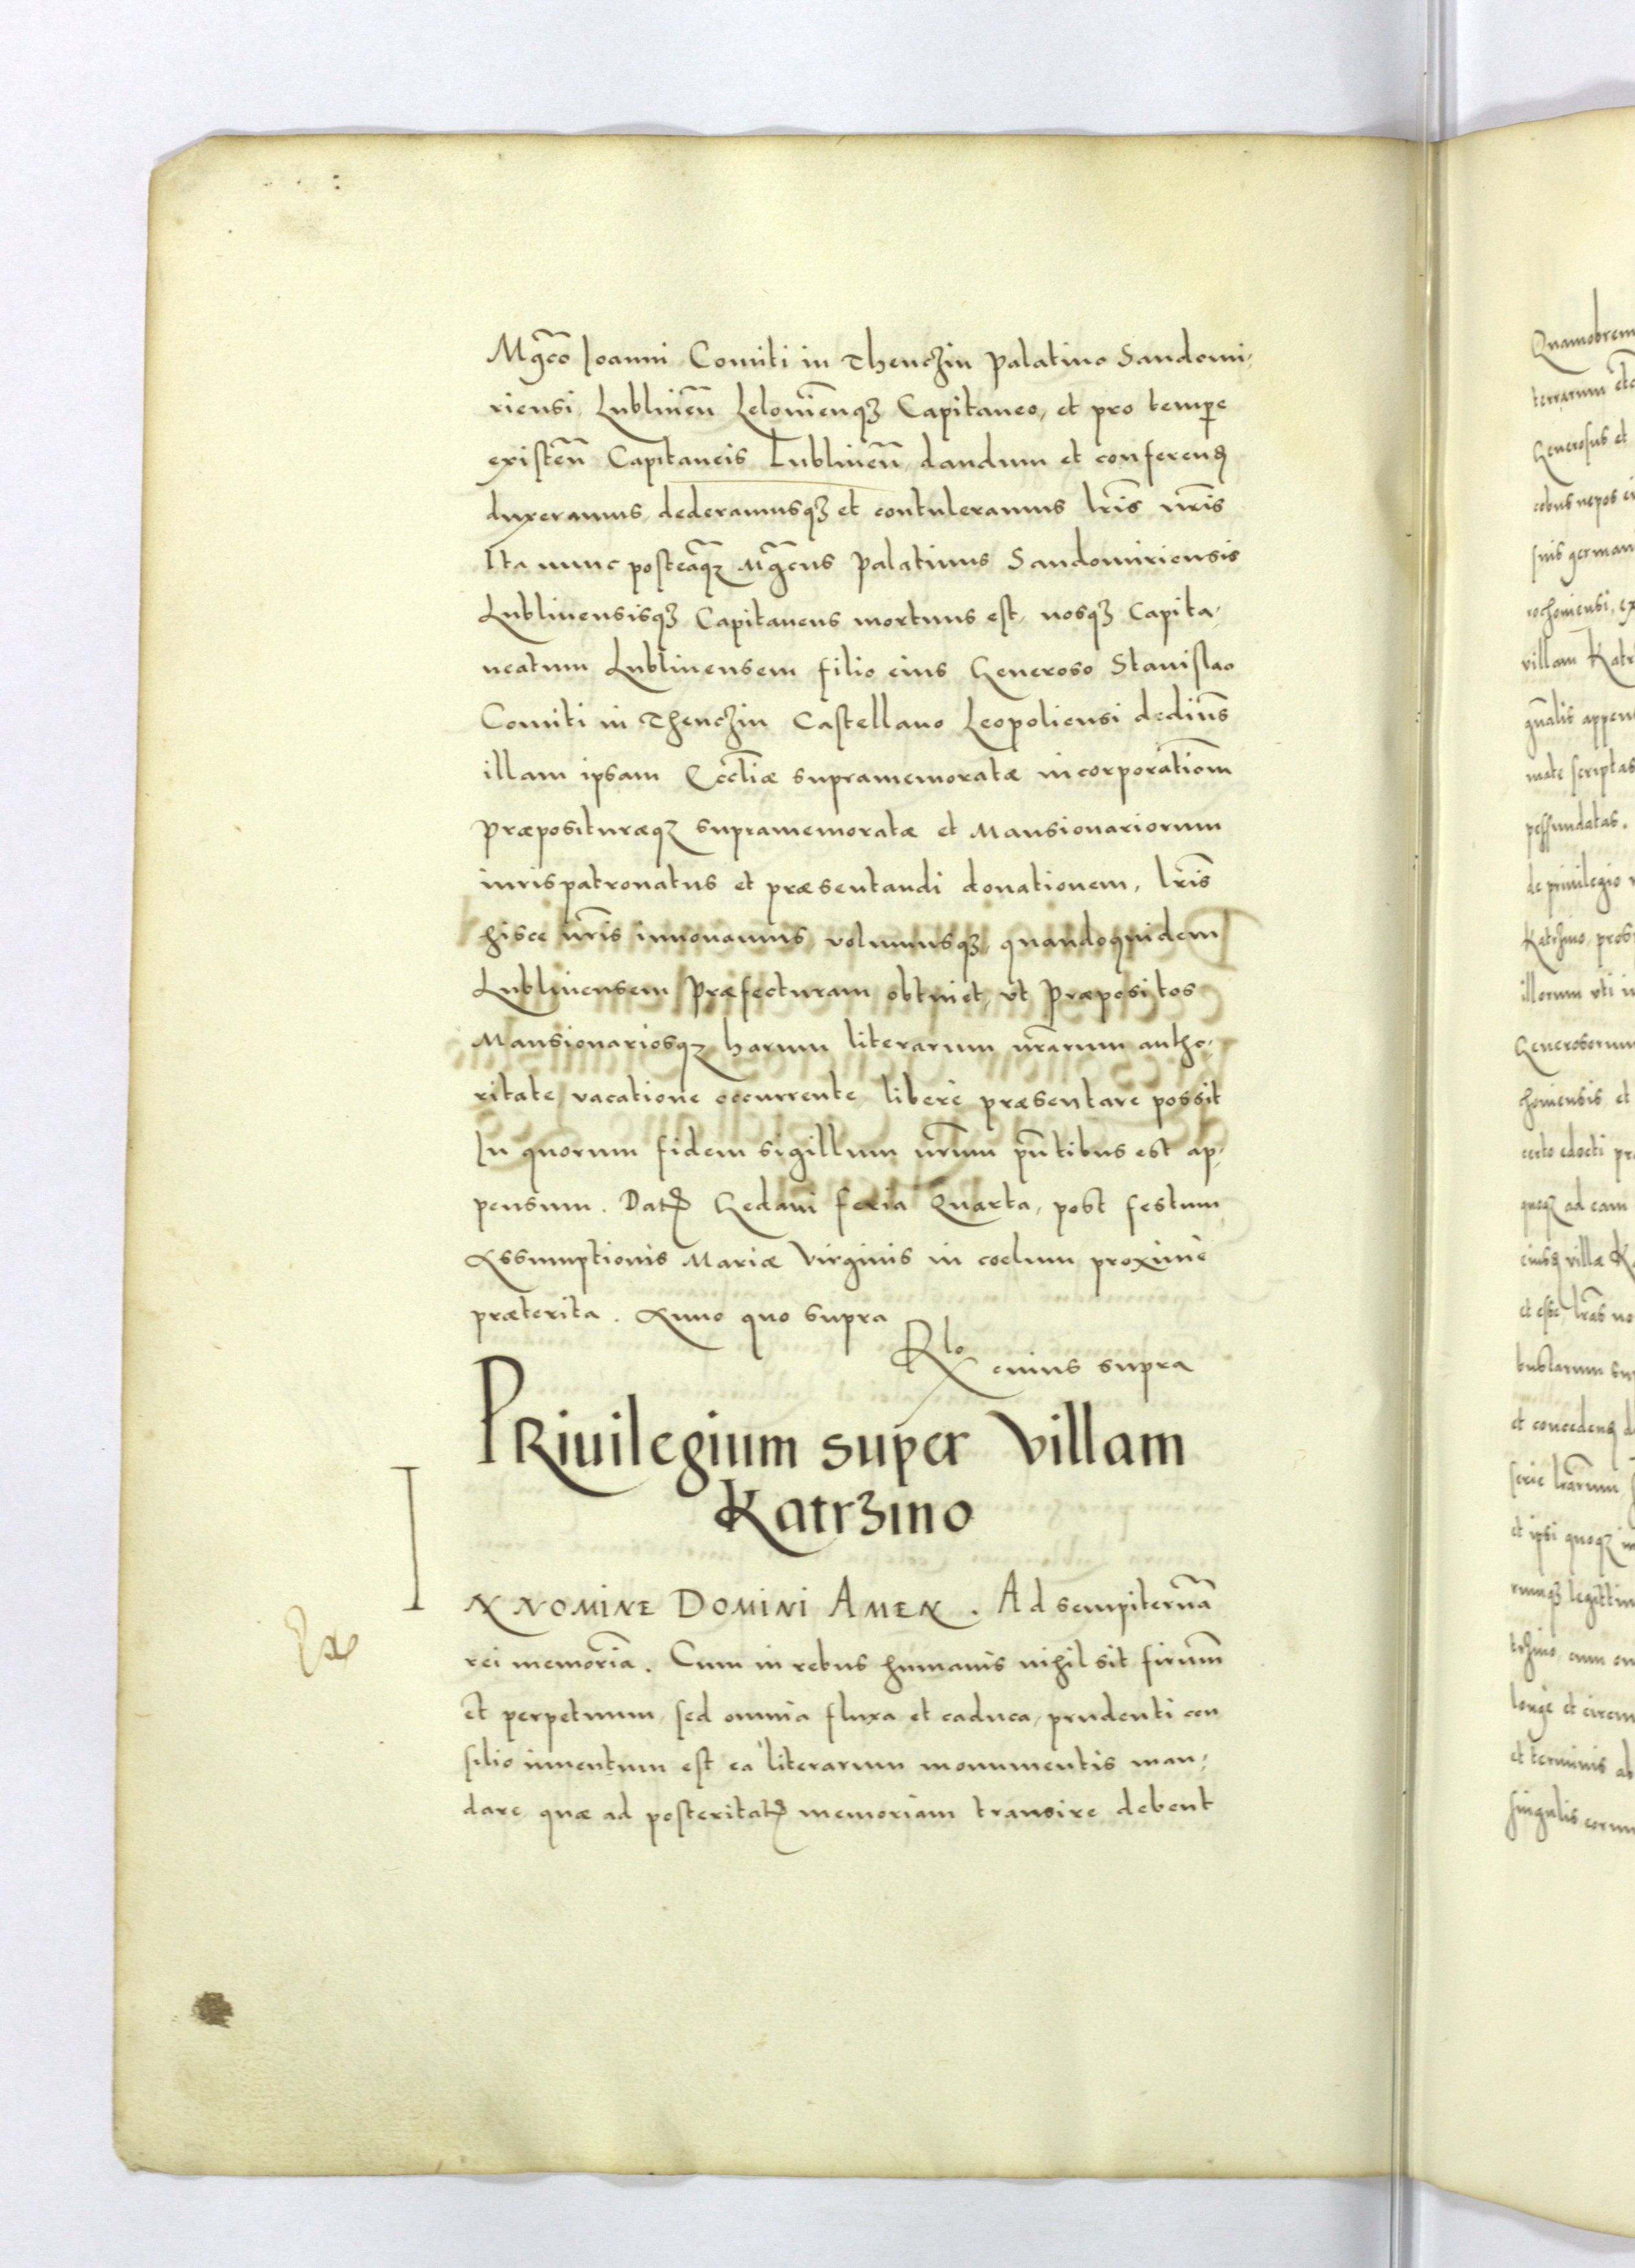 Mgco Joanni Comiti in Thenczin Palatino Sandomi,
riensi, Lublinen̄ Lelovien̄q3 Capitaneo, et pro tempe
existen̄ Capitaneis Lublinen̄, dandum et conferend
duxeramus, dederamusq3 et contuleramus lr̄is nr̄is
Ita nunc posteaq3 Mgcus Palatinus Sandomiriensis
Lublinensisq3 Capitaneus mortuus est, nosq3 Capita,
neatum Lublinensem filio eius Generoso Stanislao
Comiti in Thenczin Castellano Leopoliensi dedim̄s
illam ipsam Eccl̄iæ supramemoratæ incorporatiom̄
Præposituræq3 supramemoratæ et Mansionariorum
iuris patronatus et præsentandi donationem, lr̄is
hisce nr̄is innouamus, volumusq3, quandoquidem
Lublinensem Præfecturam obtinet, vt Præpositos
Mansionariosq3 harum literarum nr̄arum autho,
ritate, vacatione occurrente, libere præsentare possit
In quorum fidem sigillum nr̄um pn̄tibus est ap,
pensum. Dat Gedani feria Quarta, post festum
Assumptionis Mariæ Virginis in coelum proxime
præterita. Anno quo supra
Rlo cuius supra
PRiuilegium super Villam
Katrzino
IN NOMINE DOMINI AMEN. Ad sempiternā
rei memoriā. Cum in rebus humanis nihil sit firmum̄
et perpetuum, sed omnia fluxa et caduca, prudenti con
silio inuentum est ea literarum monumentis man,
dare, quæ ad posteritat memoriam transire debent
Quamobrem
terrarum etc
Generosus et
cobus nepos ei
suis german
rochoniensi, ex
villam Katr
gn̄alis appen
mate scriptas
pessundatas.
de priuilegio
Katrzino, prob
illorum vti
Generosorum
choniensis et
certo edocti pr
quoq3 ad eam
eiusd villæ K
et esse lr̄as no
bustarum su
et concedend d
serie lr̄arum
et ipsi quoq3 in
rumq3 legittim
trzino, cum om
longe et circum
et terminis ab
singulis eorum